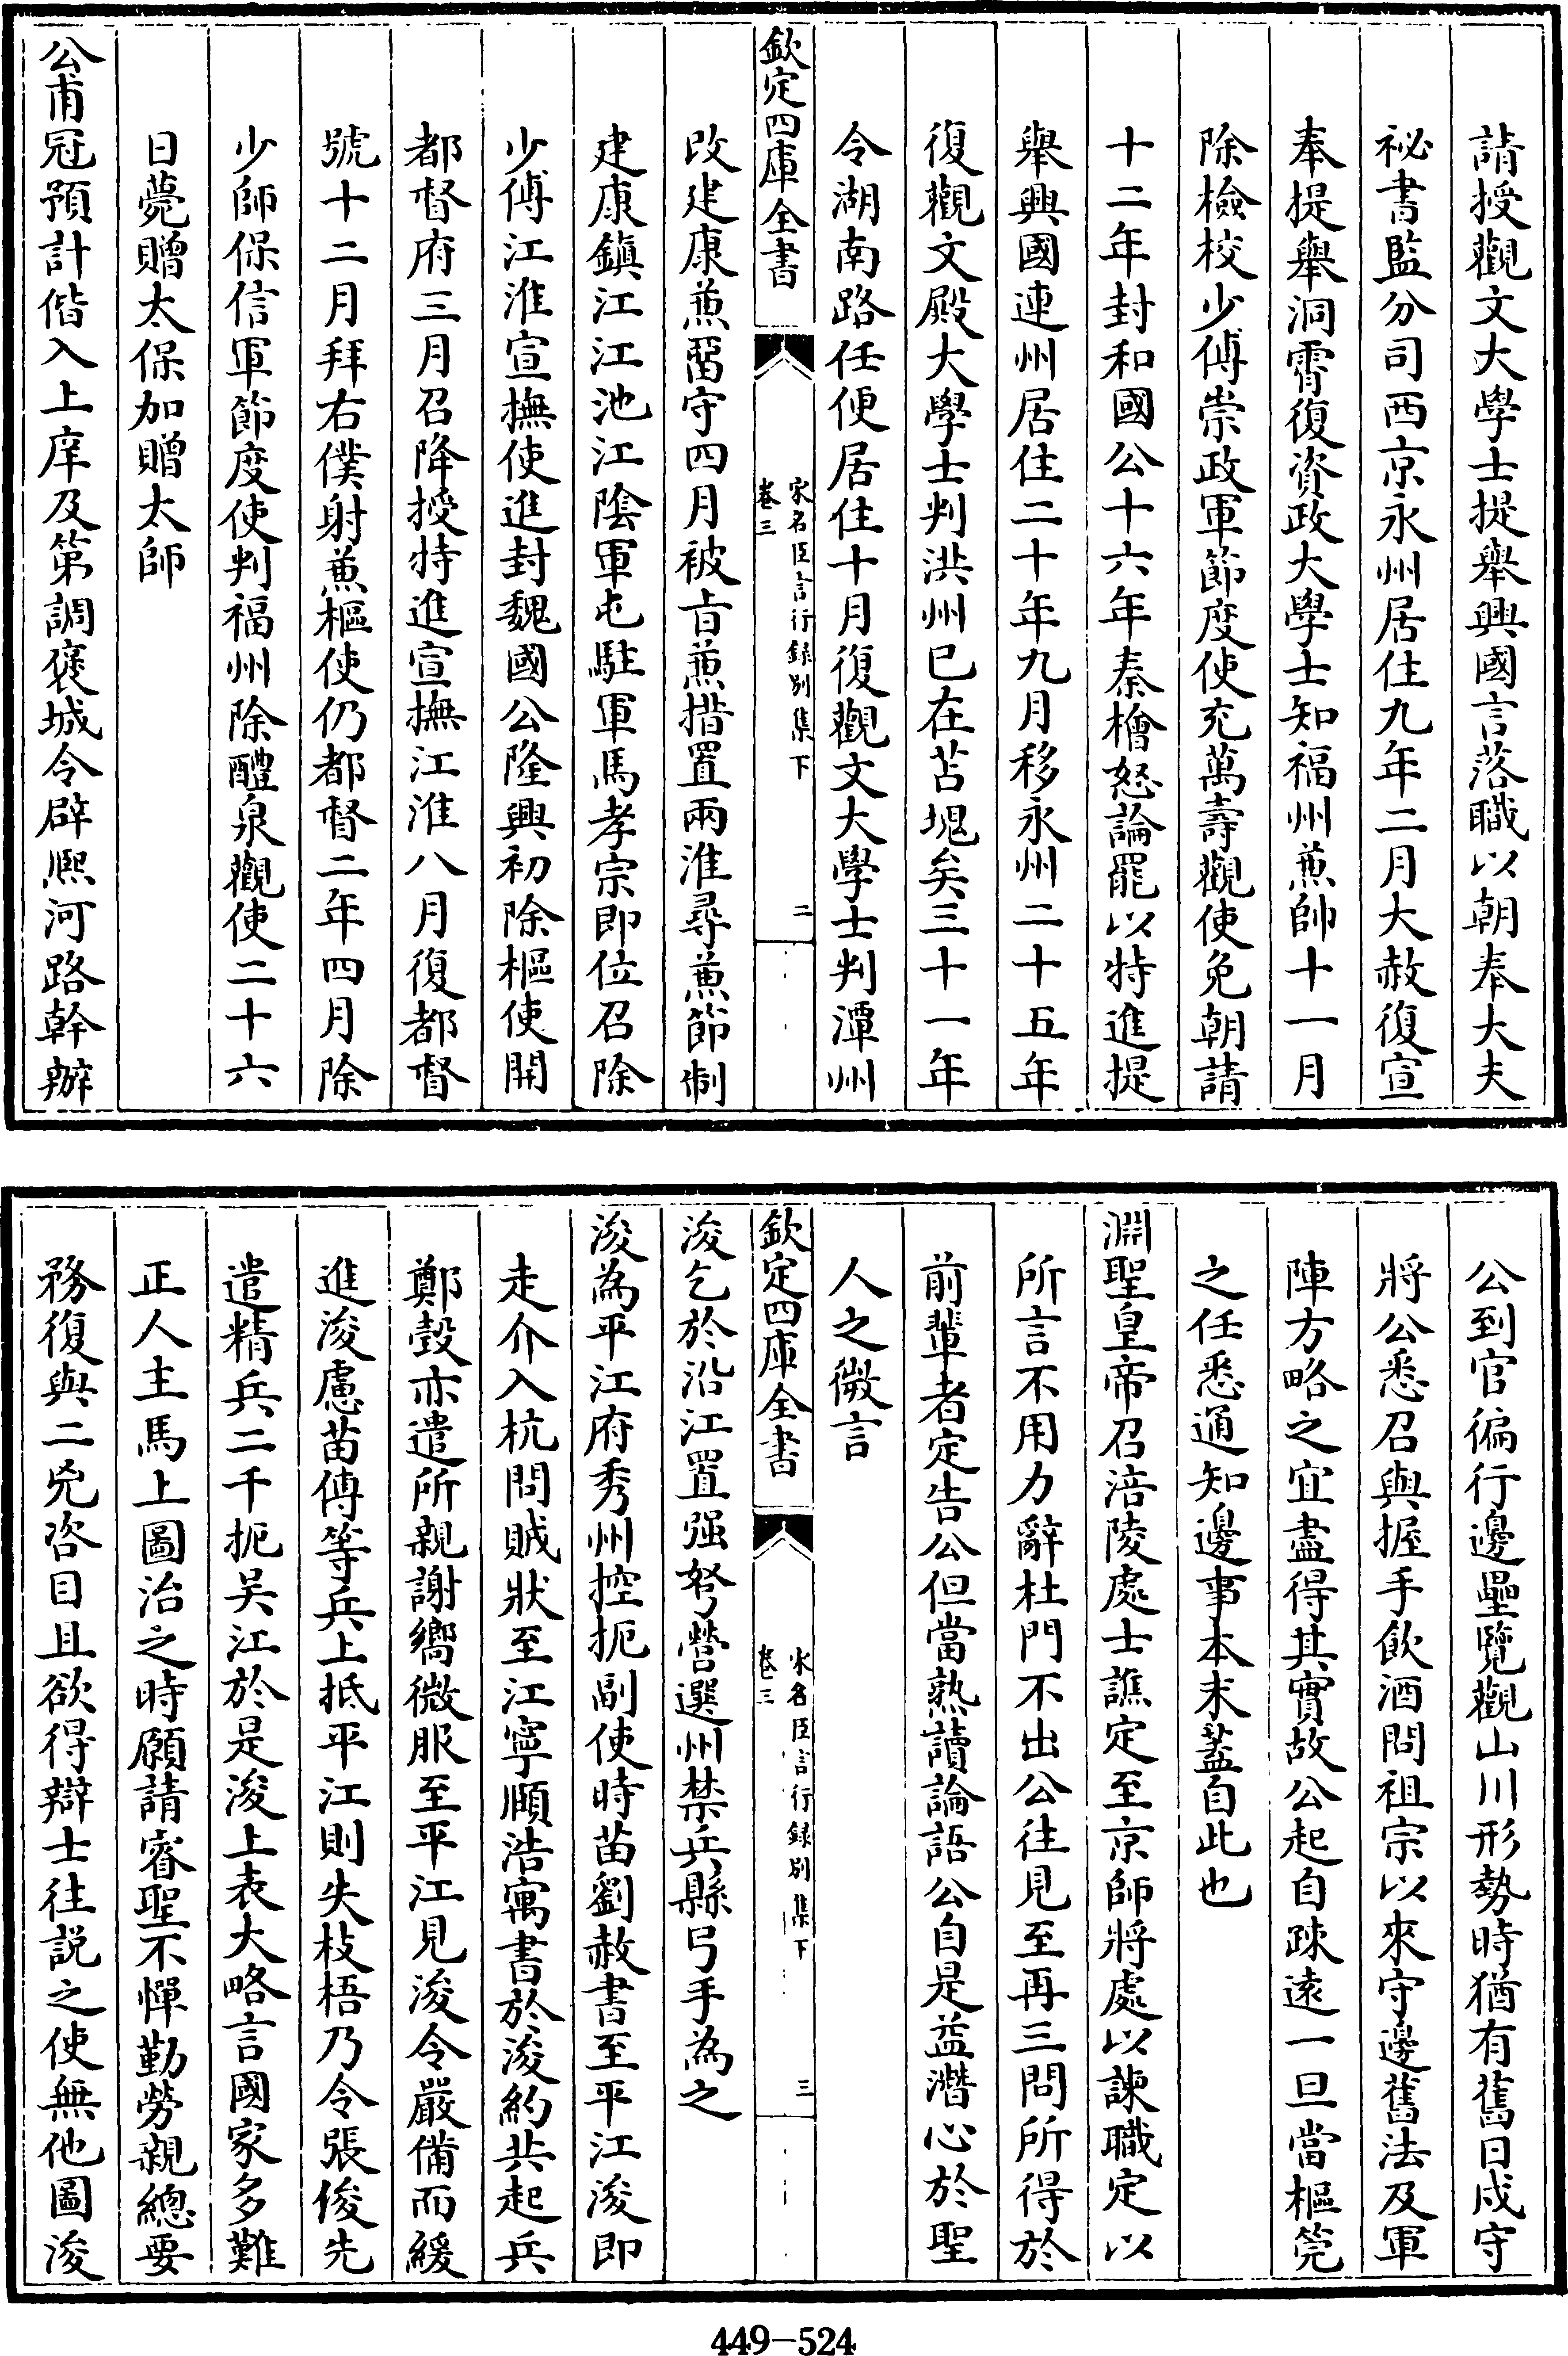 請授觀文大學士提舉興國言落職以朝奉大夫
祕書監分司西京永州居住九年二月大赦復宣
奉提舉洞霄復資政大學士知福州兼帥十一月
除檢校少傅崇政軍節度使充萬壽觀使免朝請
十二年封和國公十六年秦檜怒論罷以特進提
舉興國連州居住二十年九月移永州二十五年
復觀文殿大學士判洪州已在苫塊矣三十一年
令湖南路任便居住十月復觀文大學士判潭州
欽定四庫全書
宋名臣言行録别集下
卷三
二
改建康兼留守四月被旨兼措置兩淮尋兼節制
建康鎮江江池江陰軍屯駐軍馬孝宗即位召除
少傅江淮宣撫使進封魏國公隆興初除樞使開
都督府三月召降授特進宣撫江淮八月復都督
號十二月拜右僕射兼樞使仍都督二年四月除
少師保信軍節度使判福州除醴泉觀使二十六
日薨贈太保加贈太師
公甫冠預計偕入上庠及第調褒城令辟熈河路幹辦
公到官徧行邊壘覽觀山川形勢時猶有舊日戍守
將公悉召與握手飲酒問祖宗以來守邊舊法及軍
陣方略之宜盡得其實故公起自疎遠一旦當樞筦
之任悉通知邊事本末蓋自此也
淵聖皇帝召涪陵處士譙定至京師將處以諫職定以
所言不用力辭杜門不出公往見至再三問所得於
前輩者定告公但當熟讀論語公自是益潛心於聖
人之微言
欽定四庫全書
宋名臣言行録别集下
卷三
三
浚乞於沿江置强弩營選州禁兵縣弓手為之
浚為平江府秀州控扼副使時苗劉赦書至平江浚即
走介入杭問賊狀至江寧頤浩寓書於浚約共起兵
鄭瑴亦遣所親謝嚮微服至平江見浚令嚴備而緩
進浚慮苗傅等兵上抵平江則失枝梧乃令張俊先
遣精兵二千扼吴江於是浚上表大略言國家多難
正人主馬上圖治之時願請睿聖不憚勤勞親總要
務復與二兇咨目且欲得辯士往説之使無他圖浚
449-524